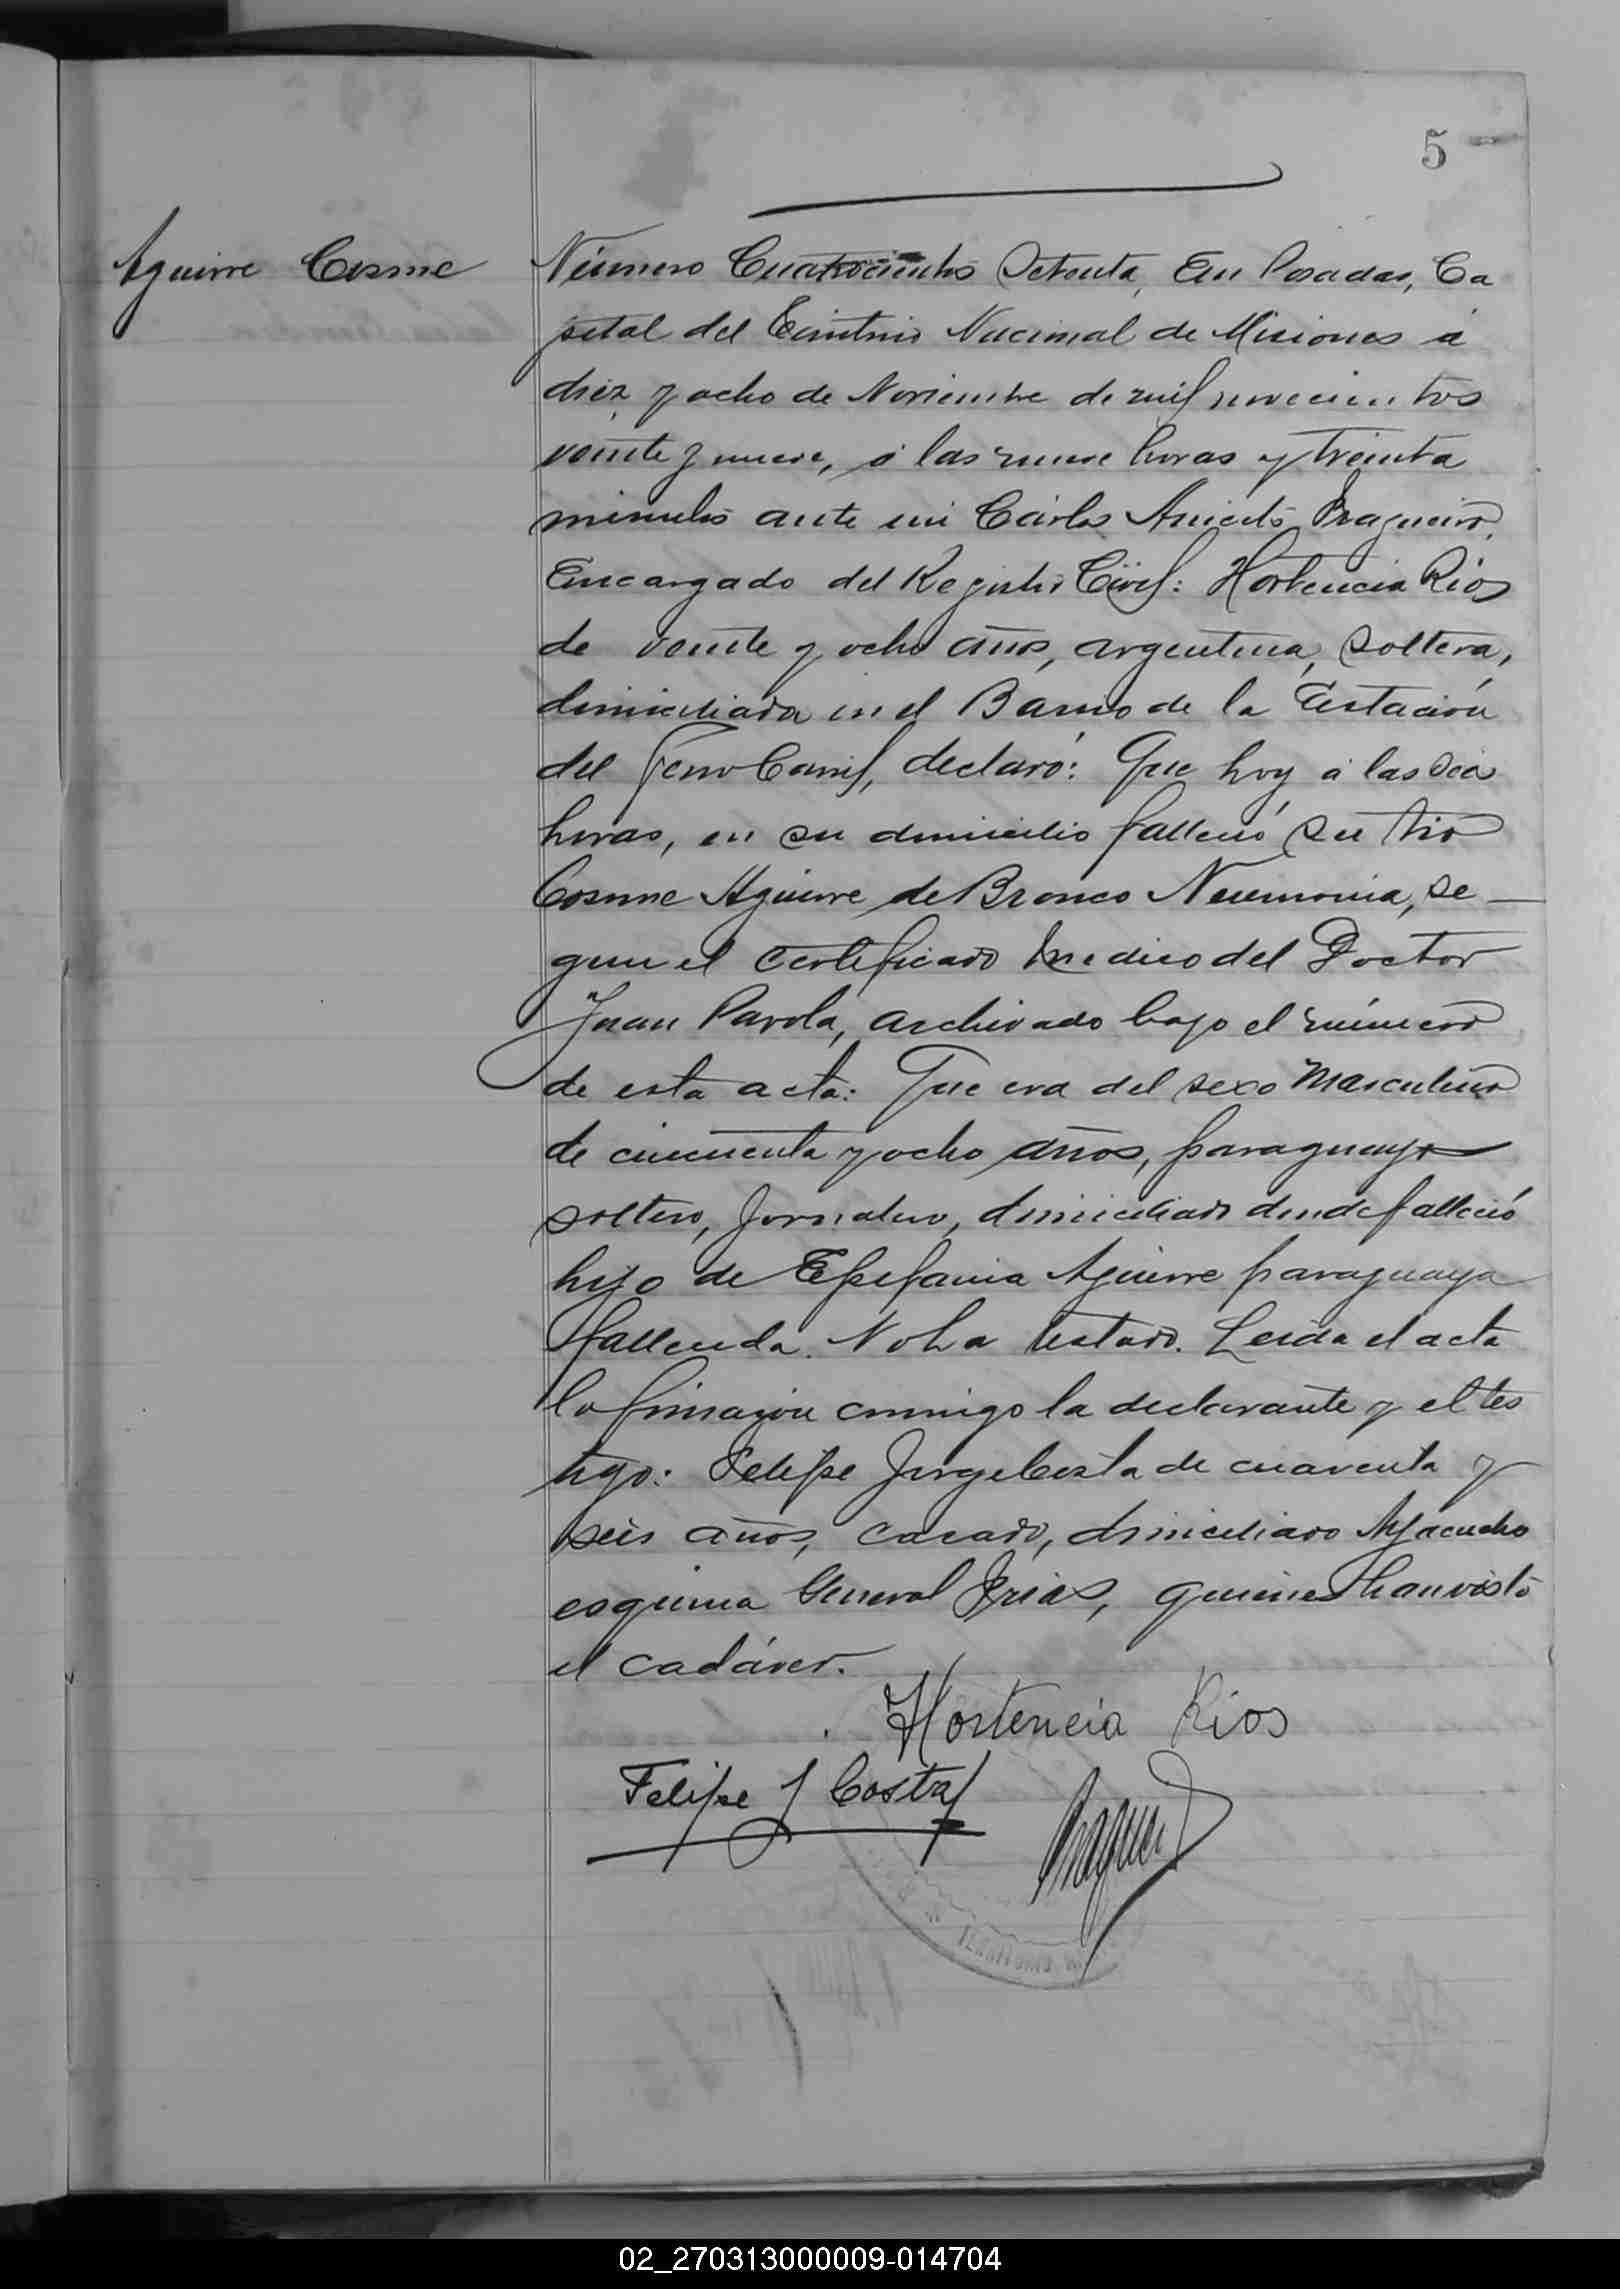 5
Aguirre Cosme
Número Cuatrocientos Setenta, En Posadas, Ca
pital del Territorio Nacional de Misiones á
diez y ocho de Noviembre de mil novecientos
veinte y nueve, á las nueve horas y treinta
minutos ante mi Cárlos Aniceto Bragueiro,
Encargado del Registro Civil: Hortencia Rios
de veinte y ocho años, argentina, soltera,
domiciliada en el Barrio de la Estación
del Ferro Carril, declaró: Que hoy á las
horas, en su domicilio falleció su tio
Cosme Aguirre de Bronco Neumonia, se
gun el certificado medico del Doctor
Juan Parola, archivado bajo el número
de esta acta: Que era del sexo masculino
de cincuenta y ocho años, paraguayo
soltero, jornalero, domiciliado donde falleció
hijo de Epifania Aguirre paraguaya
fallecida. No ha testado. Leida el acta
la firmaron conmigo la declarante y el tes
tigo: Felipe Jorge Costa de cuarenta y
seis años, casado, domiciliado Ayacucho
esquina General Frias, quienes han visto
el cadáver.
Hortencia Rios
Felipe J Costa
TERRITORIO
02_270313000009-014704